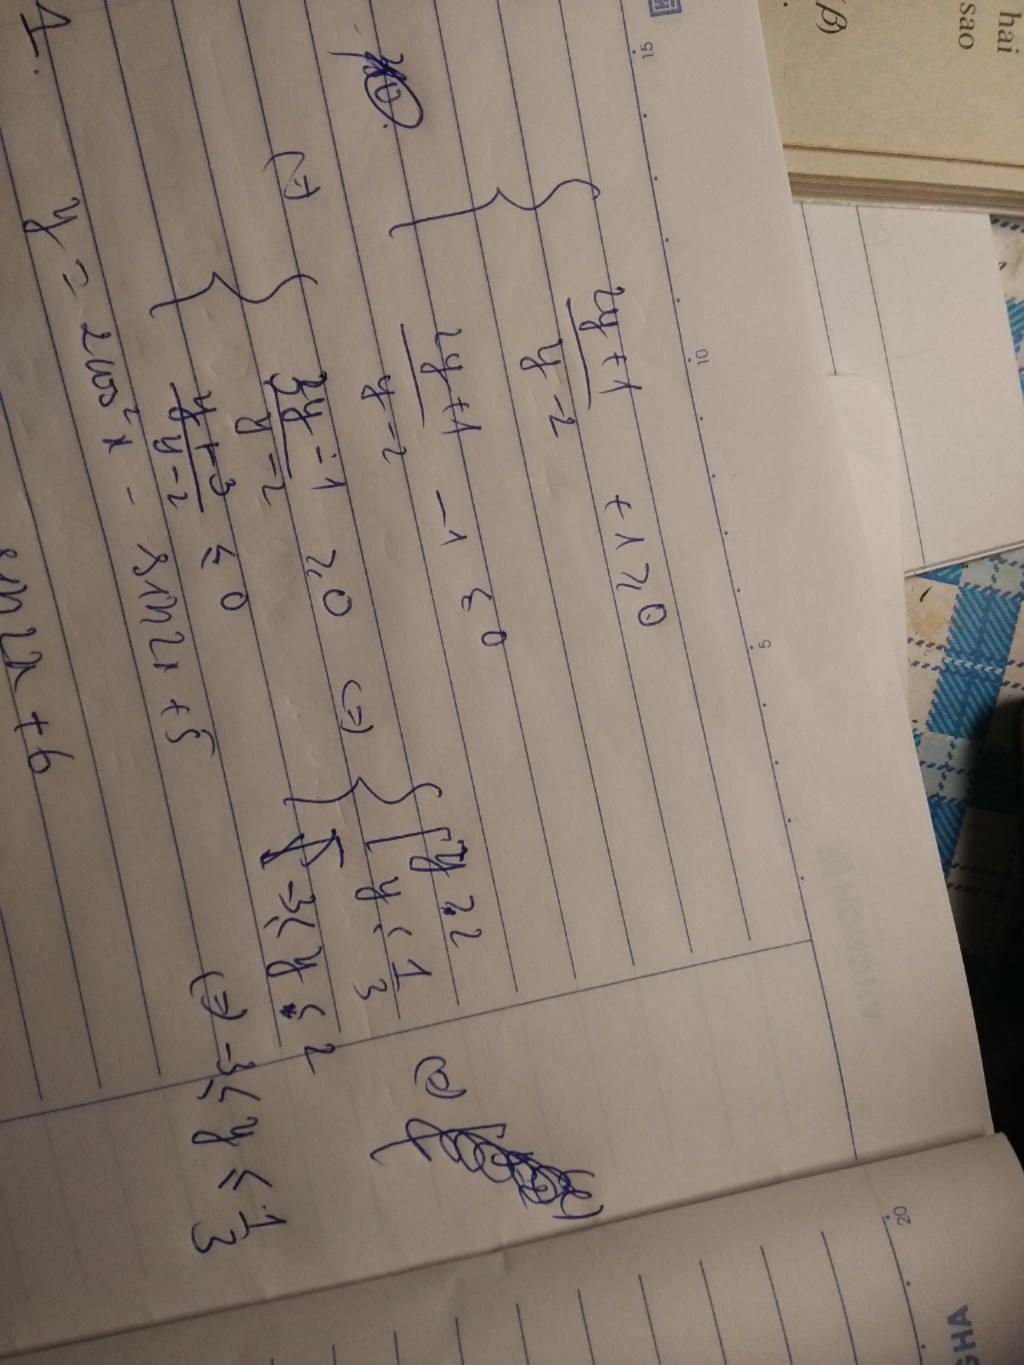 hai
sao
(β)
15
10
5
20
2y+1/y-2 + 1 ≥ 0
2y+1/y-2 - 1 ≤ 0
(=) 3y-1/y-2 ≥ 0 (=) y ≥ 2
y ≤ 1/3
y+3/y-2 ≤ 0
-3 ≤ y ≤ 2
(=) -3 ≤ y ≤ 1/3
1. y = 2cos²x - sin2x + 5
sin2x + 6
GHA